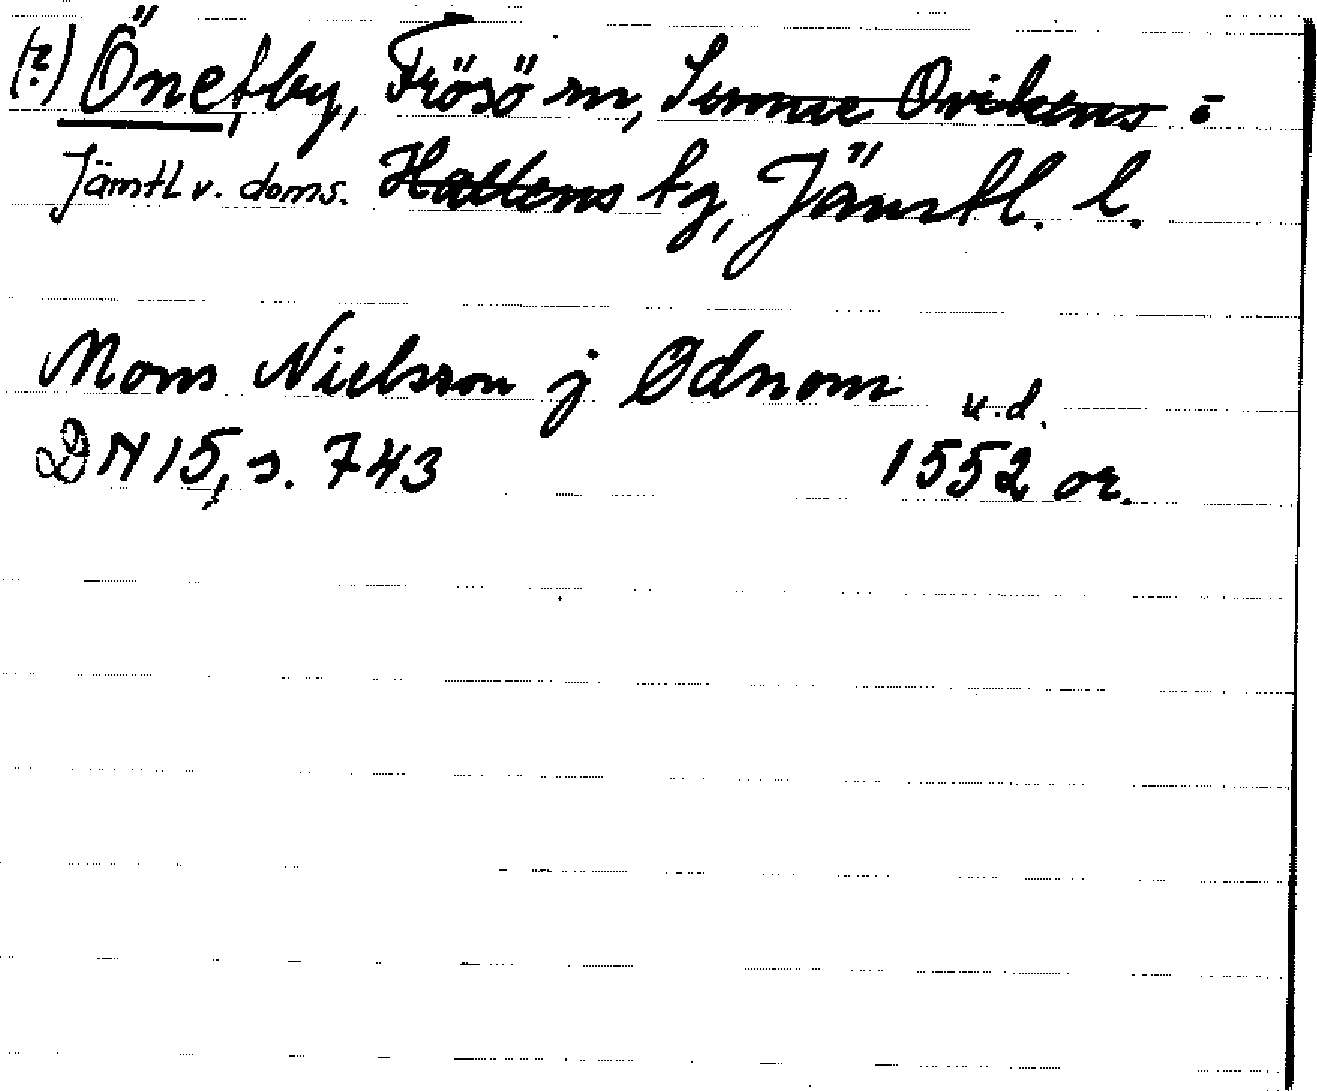 (?) Öne, by, Frösö sn, Sunne Ovikens o
Jämtl v. doms. Hallens tg, Jämtl. l.
Mons Nielsson j Ødnom u.d.
DN 15, s. 743 1552 or.